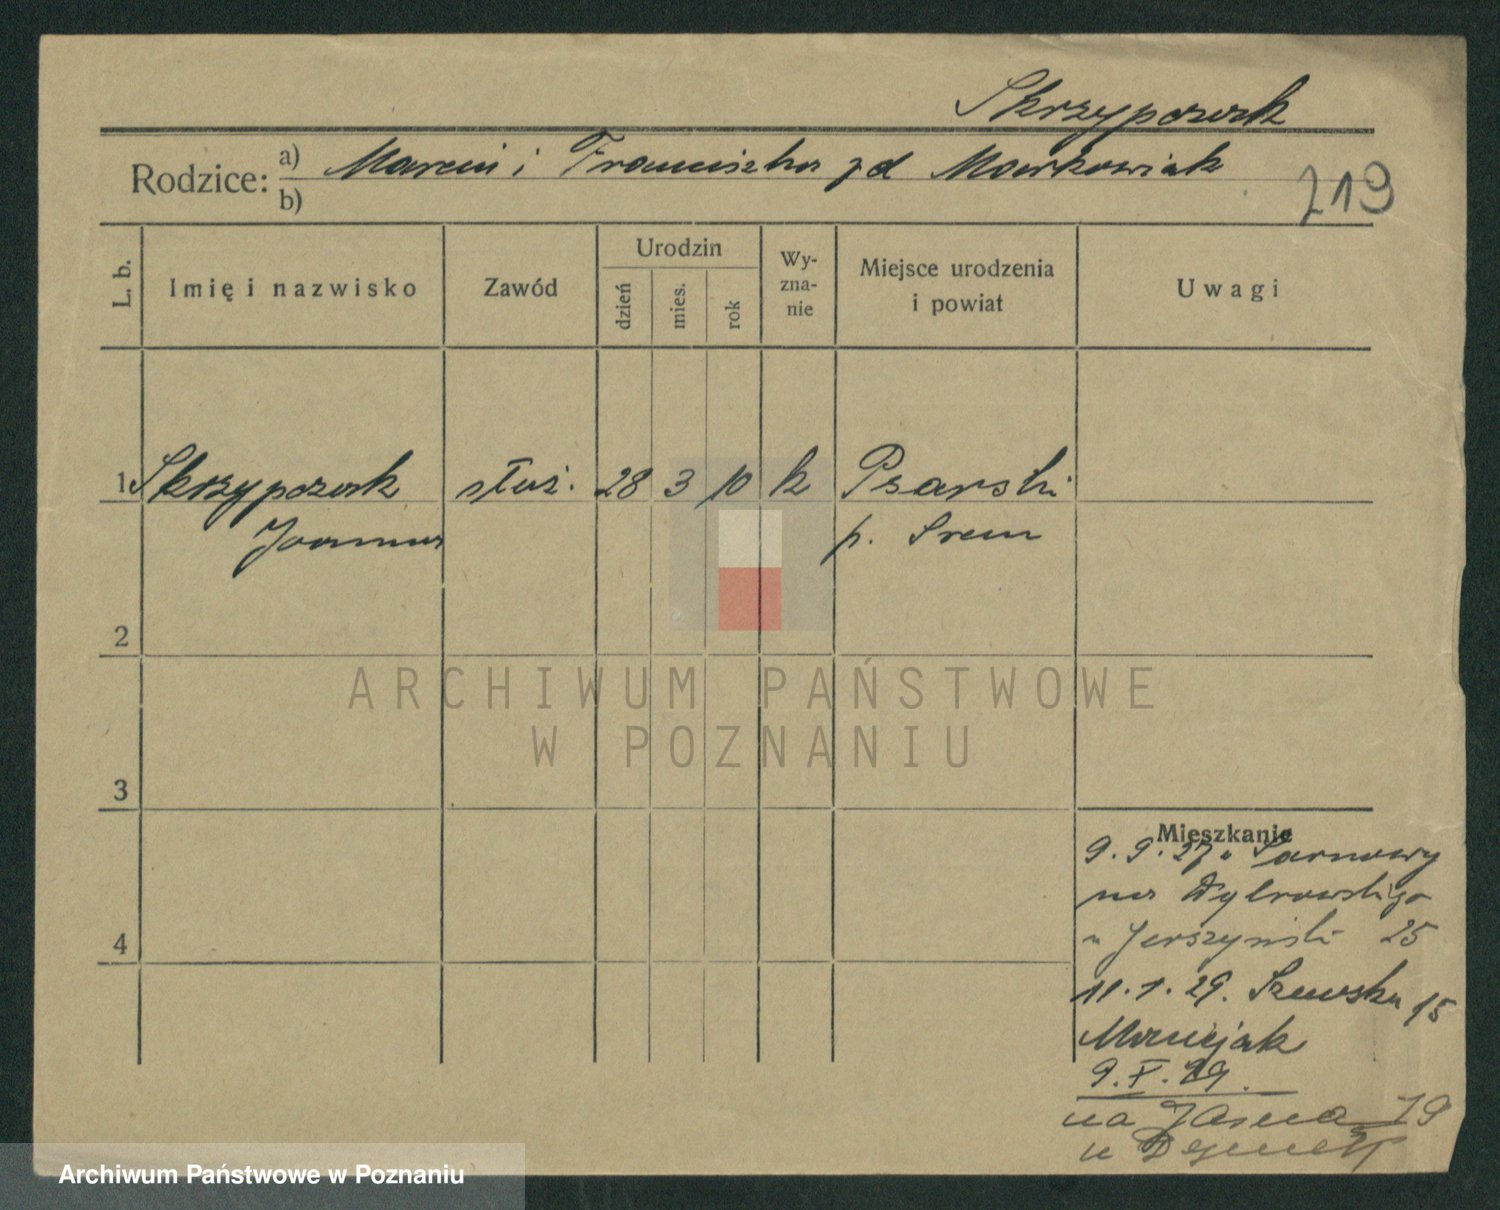 Skrzypczak
Rodzice: a) Marcin i Franciszka zd Markowiak
b)
219
L. b. Imię i nazwisko Zawód Urodzin dzień mies. rok Wyznanie Miejsce urodzenia i powiat Uwagi
1 Skrzypczak służ. 28 3 10 k Psarski
Joanna p. Śrem
2
ARCHIWUM PAŃSTWOWE
W POZNANIU
3
Mieszkanie
9. 9. 27 z Sarnowy
na
25
4
11. 1. 29. Szewska 15
Maciejak
9. X. 29.
na Jasna 19
u
Archiwum Państwowe w Poznaniu